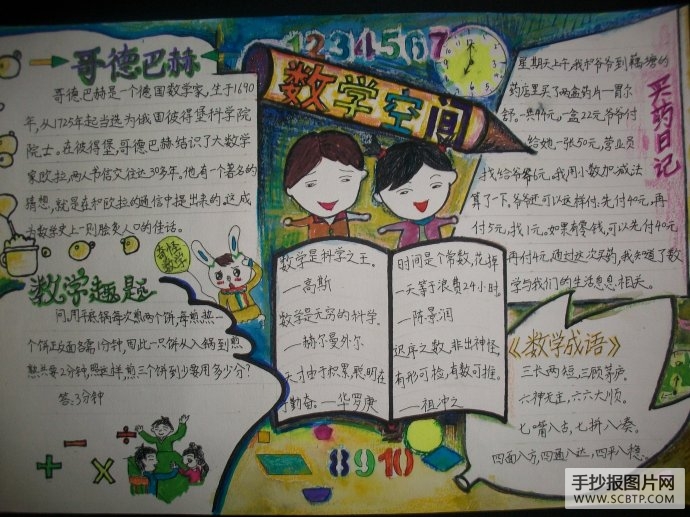 哥德巴赫
哥德巴赫是一个德国数学家,生于1690
年,从1725年起当选为俄国彼得堡科学院
院士。在彼得堡,哥德巴赫结识了大数学
家欧拉,两人书信交往达30多年。他有一个著名的
猜想,就是在和欧拉的通信中提出来的。这成
为数学史上一则脍炙人口的佳话。
奇怪
数学
数学趣题
问:用平底锅每次煎两个饼,每煎熟一
个饼正反面各需1分钟,因此一只饼从入锅到煎
熟共要2分钟,照这样,煎三个饼到少要用多少分?
答:3分钟
1234567
数学空间
数学是科学之王。
—高斯
数学是无穷的科学。
—赫尔曼外尔
天才由于积累,聪明在
于勤奋。—华罗庚
时间是个常数,花掉
一天等于浪费24小时。
—陈景润
迟序之数,非出神怪,
有形可检,有数可推。
—祖冲之
8910
买药日记
星期天上午,我和爷爷到
药店里买了两盒药片一胃尔
舒。一共44元,一盒22元爷爷付
给她一张50元,营业员
找给爷爷6元,我用小数加减法
算了一下。爷爷还可以这样付,先付40元,再
付5元,找1元。如果有零钱,可以先付40元
再付4元,通过这次买药,我知道了数
学与我们的生活息息相关。
《数学成语》
三长两短,三顾茅庐。
六神无主,六六大顺。
七嘴八舌,七拼八凑。
四面八方,四通八达,四平八稳。
手抄报图片网
WWW.SCBTP.COM